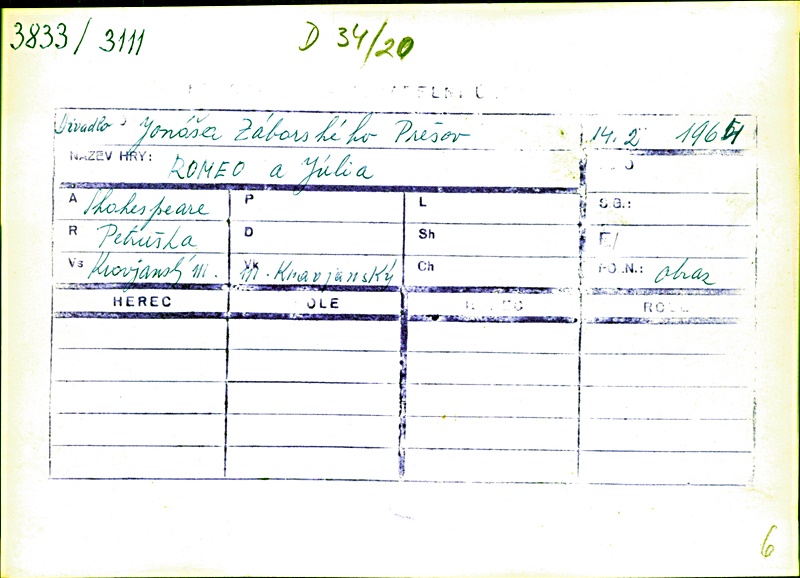 3833 / 3111 D 34/20
Divadlo Jonáša Záborského Prešov 14. 2 196
NÁZEV HRY: ROMEO a Júlia
A Shakespeare P L SG.:
R Petruška D Sh F/
Vs Kravjanský M. Vk M. Kravjanský Ch PO.N.: obraz
HEREC OLE ROL
6